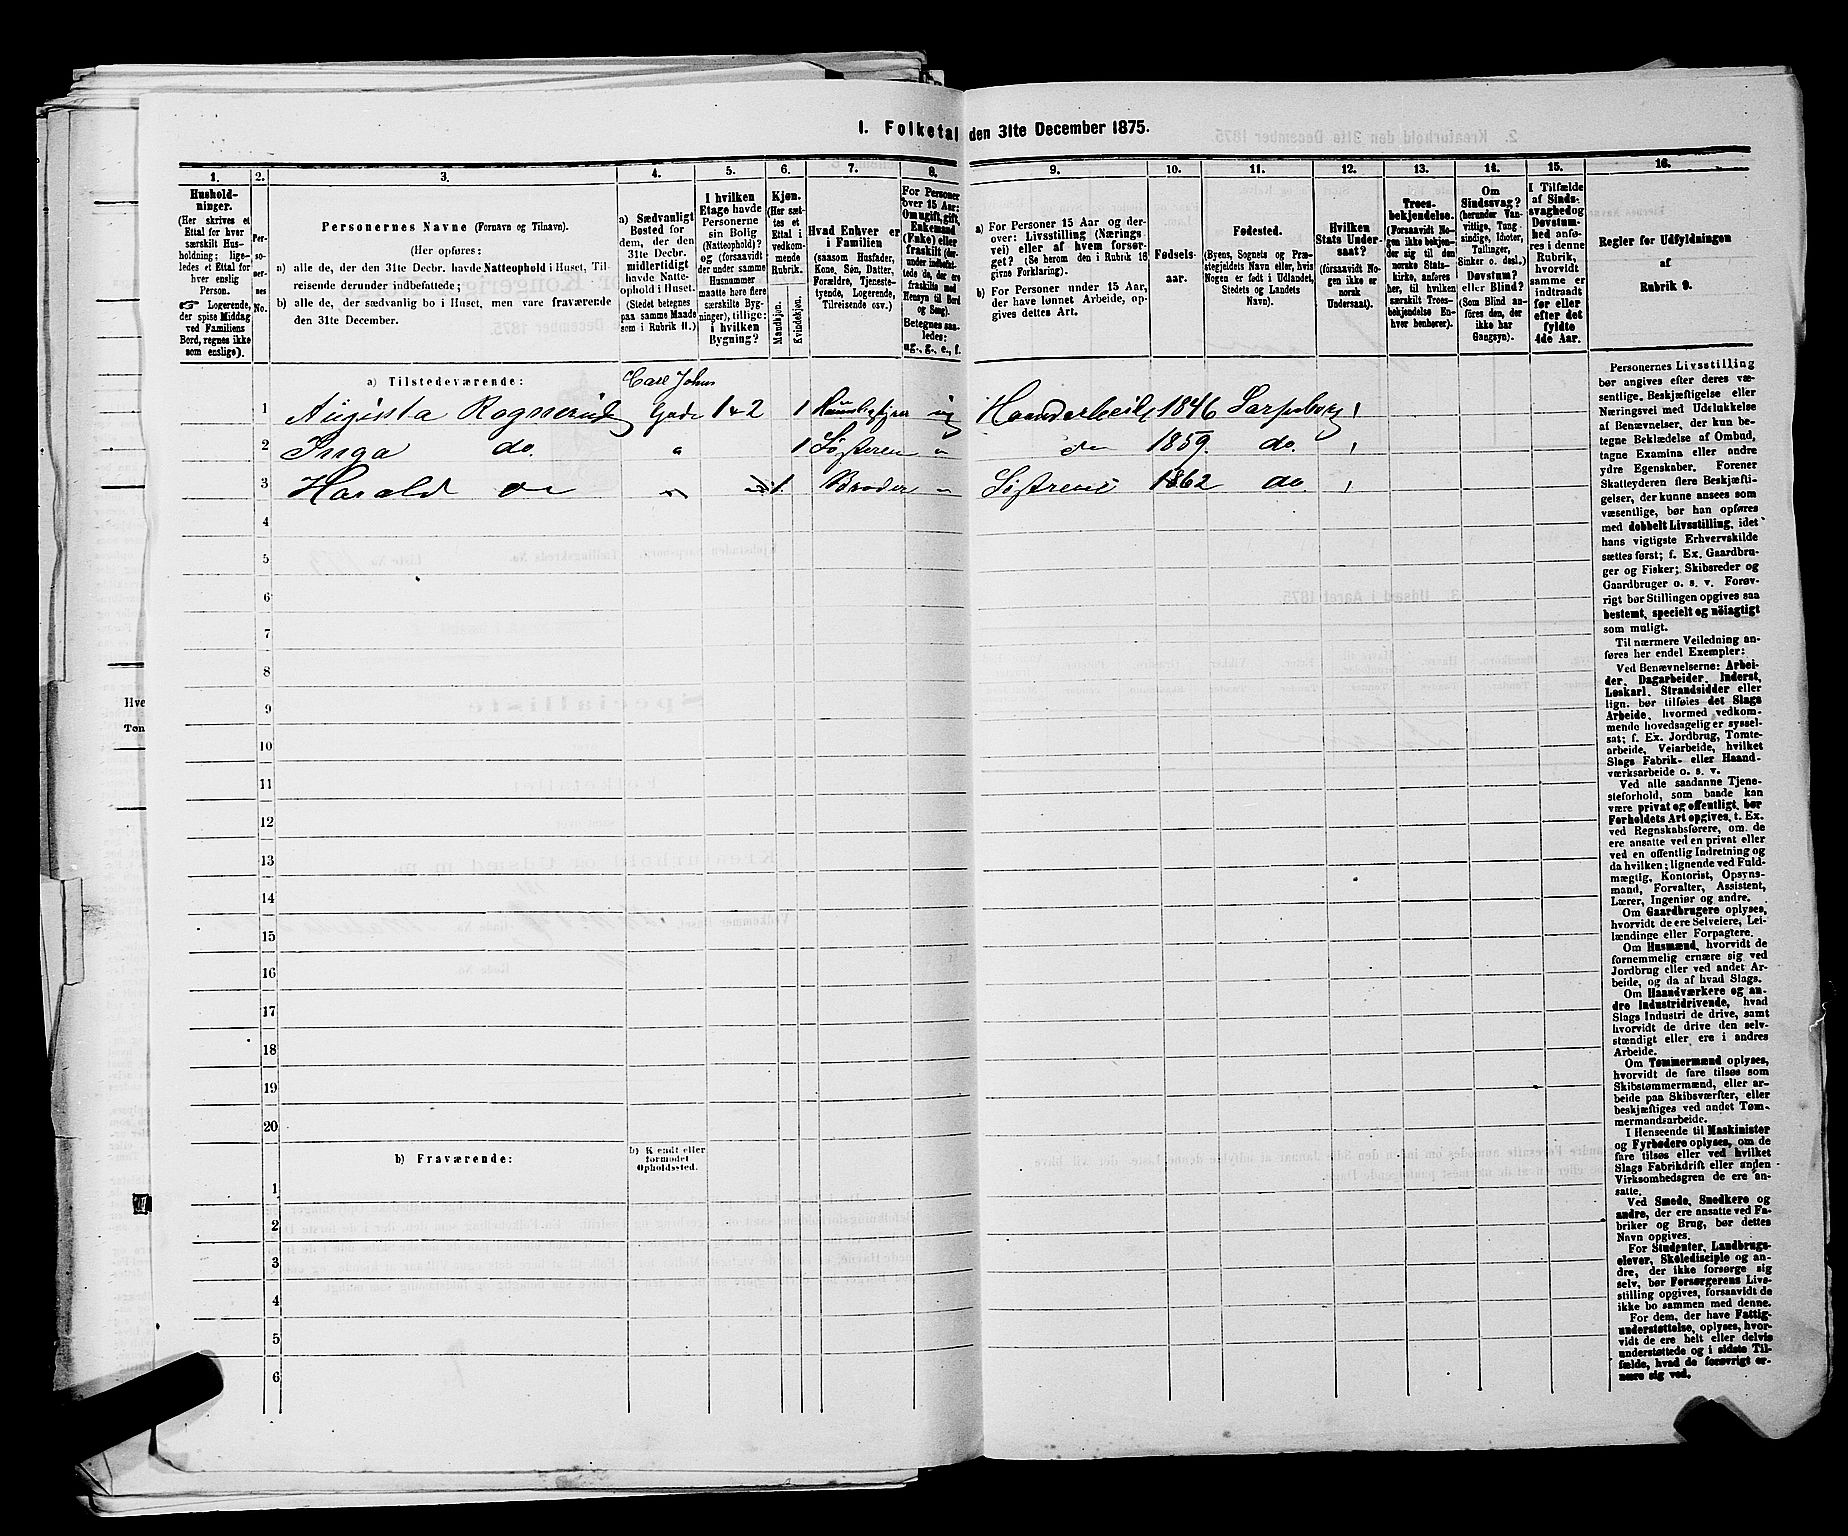 I. Folketal den 31te December 1875.
1. 2. 3. 4. 5. 6. 7. 8. 9. 10. 11. 12. 13. 14. 15. 16.
Hushold-
ninger.
(Her skrives et
Ettal for hver
særskilt Hus-
holdning; lige-
ledes et Ettal for
hver enslig
Person.
☞ Logerende,
der spise Middag
ved Familiens
Bord, regnes ikke
som enslige).
Per-
so-
ner-
nes
No.
Personernes Navne (Fornavn og Tilnavn).
(Her opføres:
a) alle de, der den 31te Decbr. havde Natteophold i Huset, Til-
reisende derunder indbefattede;
b) alle de, der sædvanlig bo i Huset, men vare fraværende
den 31te December.
a) Sædvanligt
Bosted for
dem, der den
31te Decbr.
midlertidigt
havde Natte-
ophold i Huset.
(Stedet betegnes
paa samme Maade
som i Rubrik 11.)
I hvilken
Etage havde
Personerne
sin Bolig
(Natteophold)?
og (forsaavidt
der under samme
Husnummer
maatte høre flere
særskilte Byg-
ninger), tillige:
i hvilken
Bygning?
Kjøn.
(Her sæt-
tes et
Ettal i
vedkom-
mende
Rubrik.
Mandkjøn.
Kvindekjøn.
Hvad Enhver er
i Familien
(saasom Husfader,
Kone, Søn, Datter,
Forældre, Tjeneste-
tyende, Logerende,
Tilreisende osv.)
For Personer
over 15 Aar:
Om ugift, gift,
Enkemand
(Enke) eller
fraskilt (der-
under indbefat-
tede de, der ere
fraskilte med
Hensyn til Bord
og Seng).
Betegnes saa-
ledes:
ug., g., e., f.
a) For Personer 15 Aar og der-
over: Livsstilling (Nærings-
vei) eller af hvem forsør-
get? (Se herom den i Rubrik 16
givns Forklaring).
b) For Personer under 15 Aar,
der have lønnet Arbeide, op-
gives dettes Art.
Fødsels-
aar.
Fødested.
(Byens, Sognets og Præ-
stegjeldets Navn eller, hvis
Nogen er født i Udlandet,
Stedets og Landets
Navn).
Hvilken
Stats Under-
saat?
(forsaavidt No-
gen ikke er
norsk
Undersaat).
Troes-
bekjendelse.
(Forsaavidt No-
gen ikke bekjen-
der sig til den
norske Stats-
kirke, anføres
her, til hvilken
særskilt Troes-
bekjendelse En-
hver henhører).
Om
Sindssvag?
(herunder Van-
vittige, Tung-
sindige, Idioter,
Tullinger,
Sinker o. desl.)
Døvstum?
eller Blind?
(Som Blind an-
føres den, der
ikke har
Gangsyn).
I Tilfælde
af Sinds-
svaghed og
Døvstum-
hed anfø-
res i denne
Rubrik,
hvorvidt
samme er
indtraadt
før eller
efter det
fyldte
4de Aar.
Regler for Udfyldningen
af
Rubrik 9.
a) Tilstedeværende:
Carl Johns
1 Augusta Gade 1 & 2 1 ug 1846 Sarpsborg 1
2 Inga do. " 1 Søsteren " do 1859. do. 1
3 Harald do " 1. Broder " Søstrene 1862 do. 1
4
5
6
7
8
9
10
11
12
13
14
15
16
17
18
19
20
b) Fraværende:
b) Kendt eller
formodet
Opholdssted.
1
2
3
4
5
6
Personernes Livsstilling
bør angives efter deres væ-
sentlige Beskjæftigelse eller
Næringsvei med Udelukkelse
af Benævnelser, der kun be-
tegne Beklædelse af Ombud,
tagne Examina eller andre
ydre Egenskaber. Forener
Skatteyderen flere Beskjæfti-
gelser, der kunne ansees som
væsentlige, bør han opføres
med dobbelt Livsstilling, idet
hans vigtigste Erhvervskilde
sættes først; f. Ex. Gaardbru-
ger og Fisker; Skibsreder og
Gaardbruger o. s. v. Forøv-
rigt bør Stillingen opgives saa
bestemt, specielt og nöiagtigt
som muligt.
Til nærmere Veiledning an-
føres her endel Exempler:
Ved Benævnelserne: Arbei-
der, Dagarbeider, Inderst,
Løskarl, Strandsidder eller
lign. bør tilføies det Slags
Arbeide, hvormed vedkom-
mende hovedsagelig er syssel-
sat; f. Ex. Jordbrug, Tomte-
arbeide, Veiarbeide, hvilket
Slags Fabrik- eller Haand-
værksarbeide o. s. v.
Ved alle saadanne Tjene-
steforhold, som baade kan
være privat og offentligt, bør
Forholdets Art opgives, t. Ex.
ved Regnskabsførere, om de
ere ansatte ved en privat eller
ved en offentlig Indretning og
da hvilken; lignende ved Fuld-
mægtig, Kontorist, Opsyns-
mand, Forvalter, Assistent,
Lærer, Ingeniør og andre.
Om Gaardbrugere oplyses,
hvorvidt de ere Selveiere, Lei-
lændinge eller Forpagtere.
Om Husmænd, hvorvidt de
fornemmelig ernære sig ved
Jordbrug eller ved andet Ar-
beide, og da af hvad Slags.
Om Haandværkere og an-
dre Industridrivende, hvad
Slags Industri de drive, samt
hvorvidt de drive den selv-
stændigt eller ere i andres
Arbeide.
Om Tømmermænd oplyses,
hvorvidt de fare tilsøs som
Skibstømmermænd, eller ar-
beide paa Skibsværfter, eller
beskjæftiges ved andet Tøm-
mermandsarbeide.
I Henseende til Maskinister
og Fyrbødere oplyses, om de
fare tilsøs eller ved hvilket
Slags Fabrikdrift eller anden
Virksomhedsgren de ere an-
satte.
Ved Smede, Snedkere og
andre, der ere ansatte ved Fa-
briker og Brug, bør dettes
Navn opgives.
For Studenter, Landbrugs-
elever, Skoledisciple og an-
dre, der ikke forsørge sig
selv, bør Forsørgerens Livs-
stilling opgives, forsaavidt de
ikke bo sammen med denne.
For dem, der have Fattig-
understøttelse, oplyses, hvor-
vidt de ere helt eller delvis
understøttede og i sidste Til-
fælde, hvad de forøvrigt er-
nære sig ved.